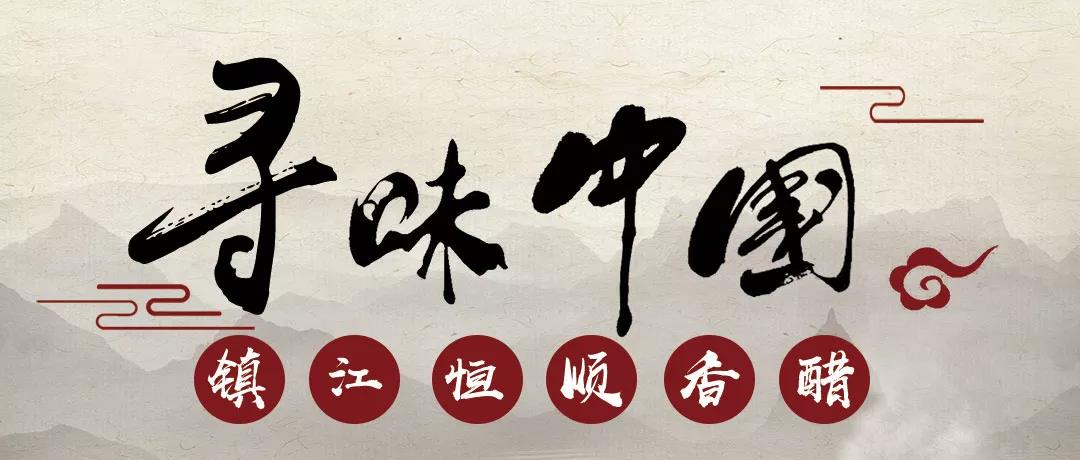 寻味中國
镇江恒顺香醋